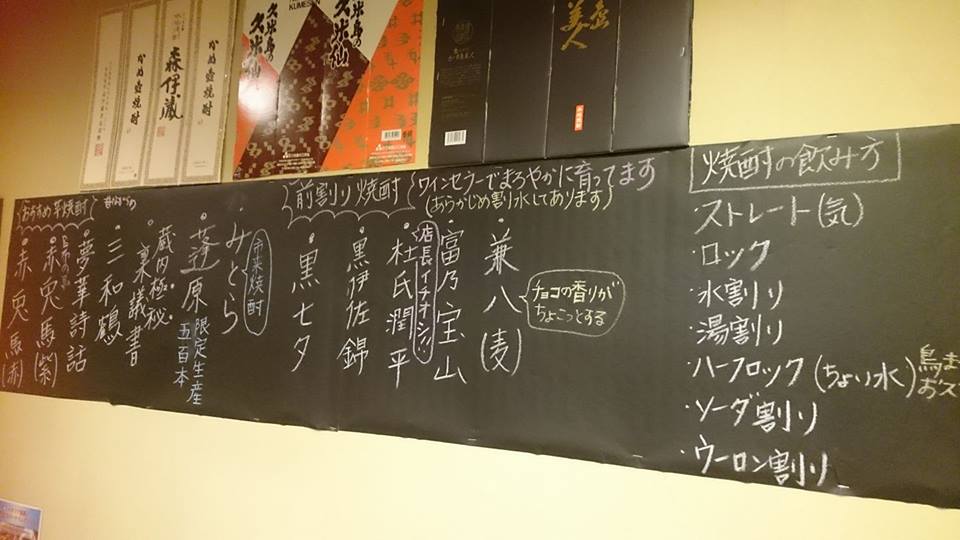 かめ壺焼酎
森伊蔵
かめ壺焼酎
久米島の
久米仙
KUMESEN
米島の
久米仙
美人
焼酎の飲み方
・ストレート(気)
・ロック
・水割り
・湯割り
・ハーフロック(ちょい水)
・ソーダ割り
・ウーロン割り
前割り焼酎
ワインセラーでまろやかに育ってます
(あらかじめ割り水してあります)
・兼八(麦)
チョコの香りが
ちょこっとする
・富乃宝山
店長イチオシ
・杜氏潤平
・黒伊佐錦
・黒七夕
おすすめ芋焼酎
・みとら
市来焼酎
・蓬原
限定生産
五百本
蔵内極秘
・裏議書
・三和鶴
・夢華詩話
・赤兎馬(紫)
・赤兎馬(赤)